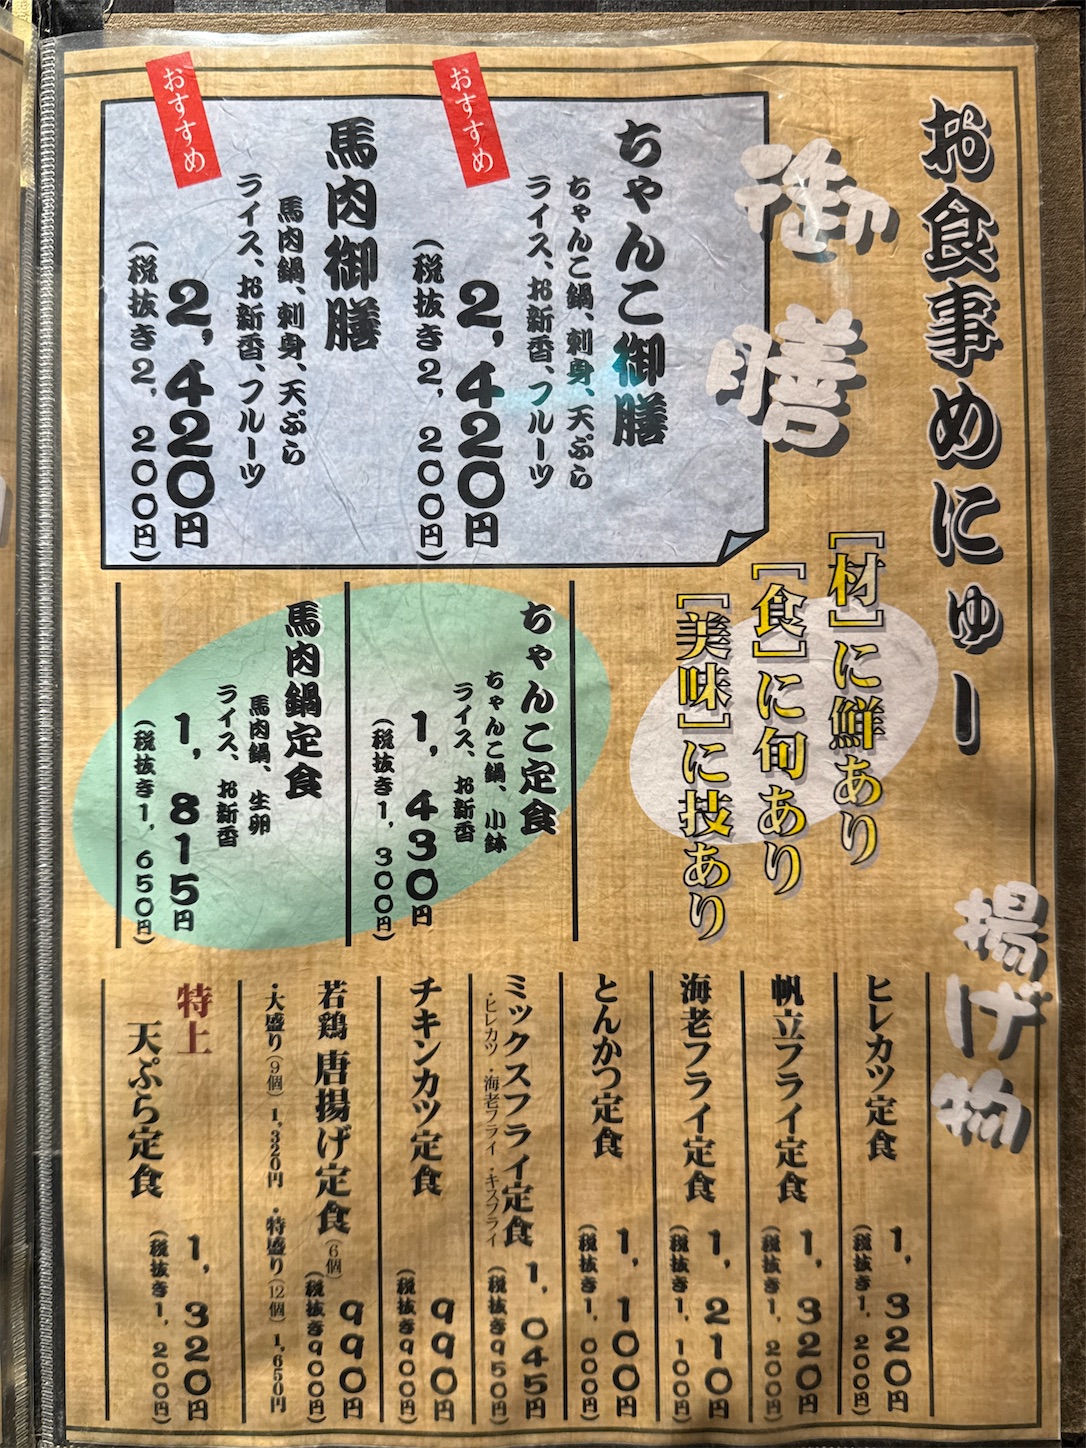 お食事めにゅー
御膳
おすすめ
ちゃんこ御膳
ちゃんこ鍋、刺身、天ぷら
ライス、お新香、フルーツ
2,420円
(税抜き2,200円)
おすすめ
馬肉御膳
馬肉鍋、刺身、天ぷら
ライス、お新香、フルーツ
2,420円
(税抜き2,200円)
[材]に鮮あり
[食]に旬あり
[美味]に技あり
ちゃんこ定食
ちゃんこ鍋、小鉢
ライス、お新香
1,430円
(税抜き1,300円)
馬肉鍋定食
馬肉鍋、生卵
ライス、お新香
1,815円
(税抜き1,650円)
揚げ物
ヒレカツ定食
1,320円
(税抜き1,200円)
帆立フライ定食
1,320円
(税抜き1,200円)
海老フライ定食
1,210円
(税抜き1,100円)
とんかつ定食
1,100円
(税抜き1,000円)
ミックスフライ定食
・ヒレカツ ・海老フライ ・キスフライ
1,045円
(税抜き950円)
チキンカツ定食
990円
(税抜き900円)
若鶏 唐揚げ定食(6個)
990円
(税抜き900円)
・大盛り(9個) 1,320円 ・特盛り(12個) 1,650円
特上
天ぷら定食
1,320円
(税抜き1,200円)